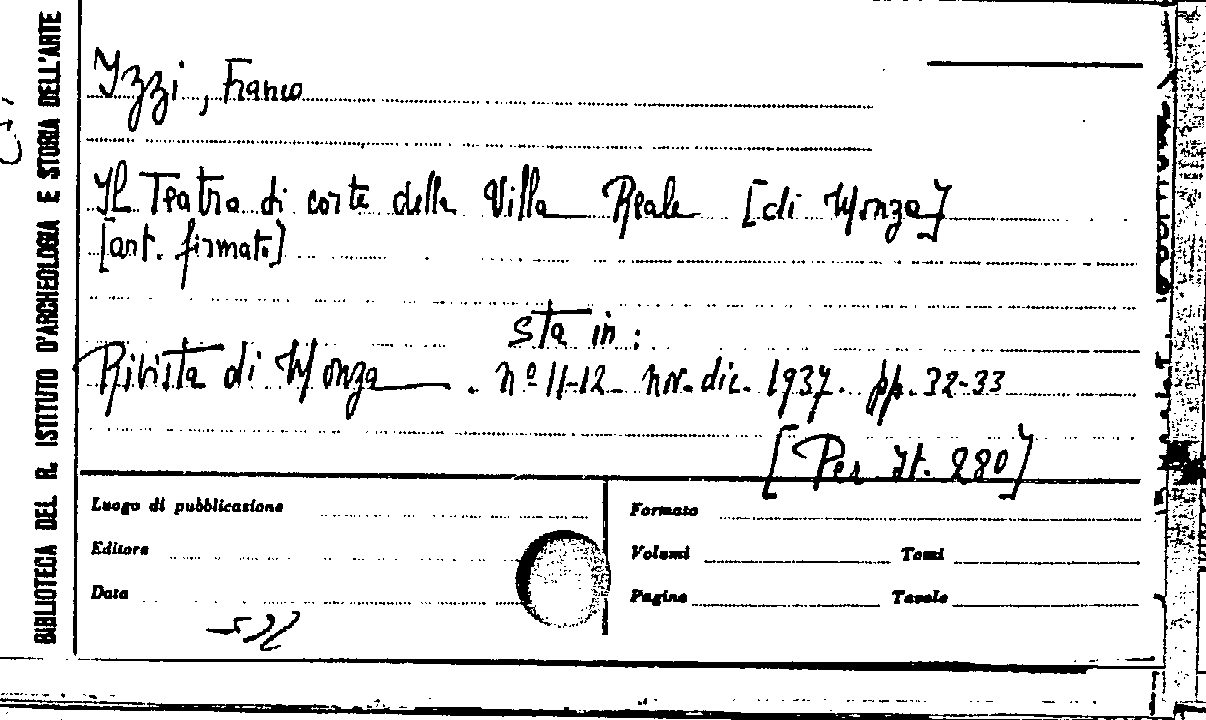 BIBLIOTECA DEL R. ISTITUTO D'ARCHEOLOGIA E STORIA DELL'ARTE
Izzi, Franco
Il Teatro di corte della Villa Reale [di Monza]
[art. firmato]
sta in:
Rivista di Monza. nº 11-12 nov. dic. 1937. pp. 32-33
[Per It. 280]
Luogo di pubblicazione
Editore
Data
Formato
Volumi Tomi
Pagine Tavole